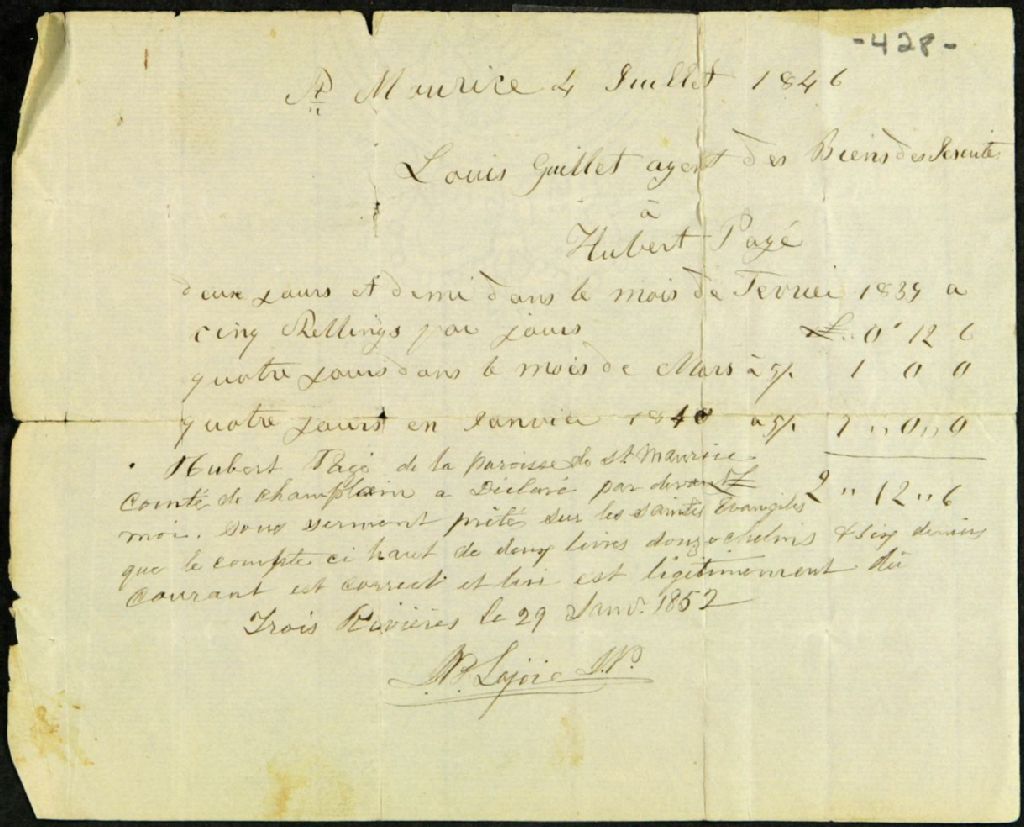 -428-
St Maurice 4 Juillet 1846
Louis Guillet agent des Biens des Jesuites
à
Hubert Pagé
deux jours et demi dans le mois de Fevriei 1839 a
cinq Shellings par jours £ .. 0 " 12 6
quatre jours dans le mois de Mars à 5/. 1 0 0
quatre jours en Janvier 1840 a 5/. 1 ,, 0 ,, 0
Hubert Pagé de la paroisse de St. Maurice 2 " 12 " 6
Comté de Champlain a Déclaré par devant
moi, sous serment prêté sur les saintes Evangiles
que le compte ci haut de deux livres douze chelins & six deniers
courant est correct et lui est légitimement dû
Trois Rivières le 29 Janv. 1852
Lajoie J.P.